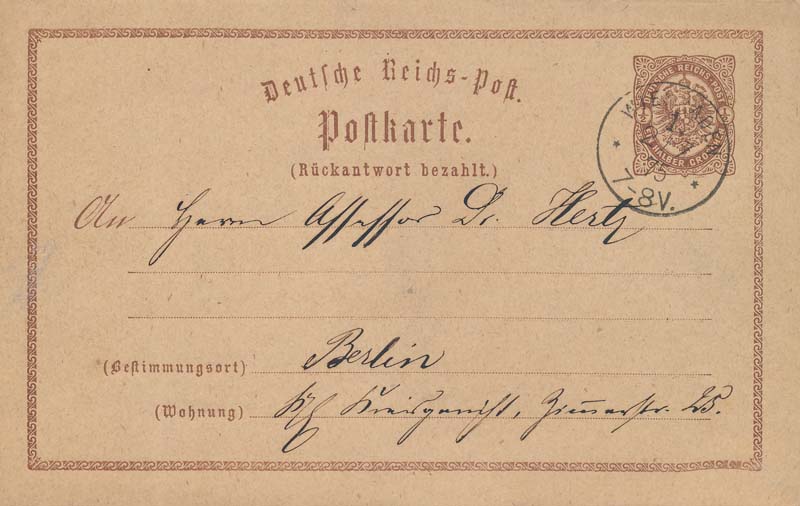 Deutsche Reichs-Post.
Postkarte.
(Rückantwort bezahlt.)
DEUTSCHE REICHS POST
EIN HALBER GROSCHEN
7-8V.
An Herrn Assessor Dr. Hertz
(Bestimmungsort) Berlin
(Wohnung) Kreisgericht, Zimmerstr. 25.